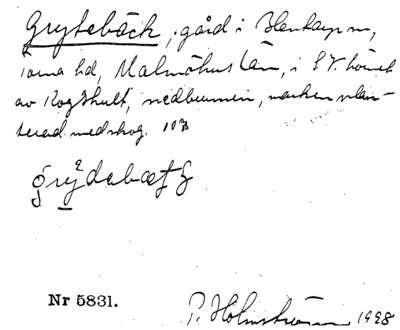 Grytebäck, gård i Blentarp sn,
Torna hd, Malmöhus län, i S.V. hörnet
av Rogshult, nedbrunnen, marken plan-
terad med skog.
Nr 5831. P. Holmström 1928